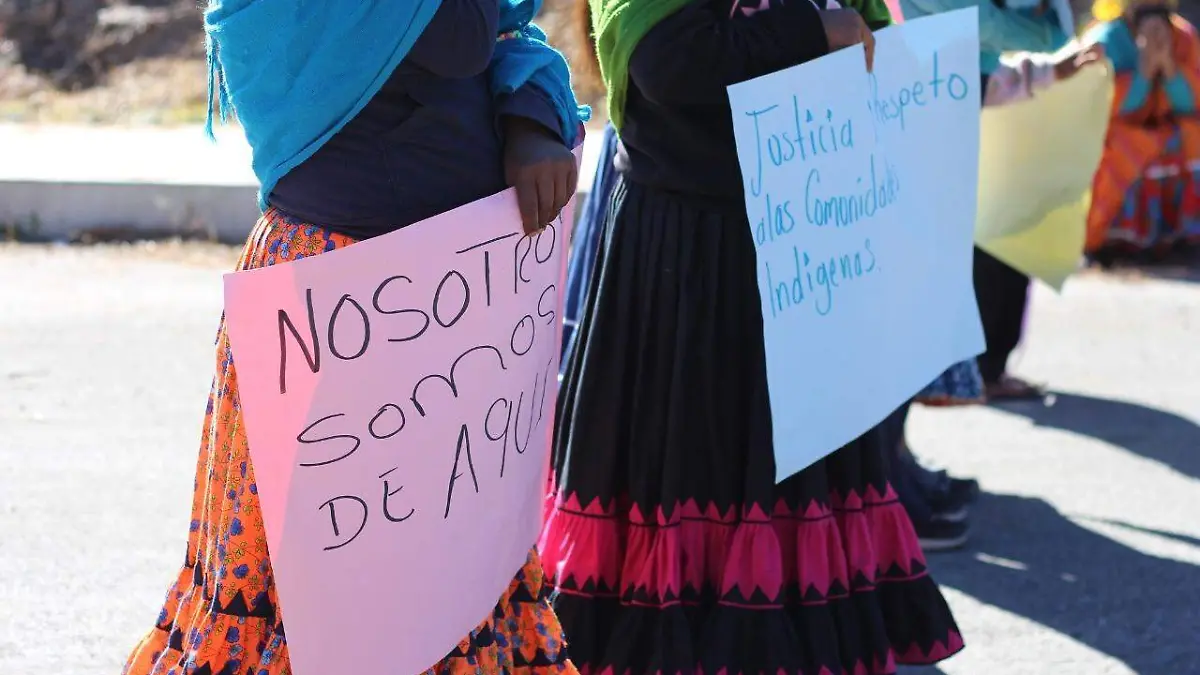 NOSOTROS
SOMOS
DE AQUI
Justicia respeto
alas Comunidades
Indigenas.